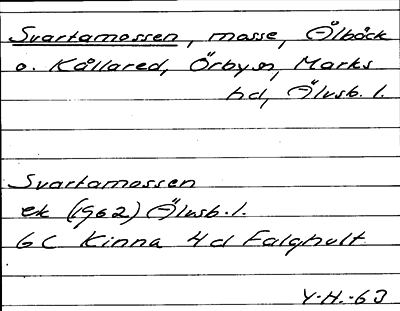 Svartamossen, mosse, Ölbäck
o. Kållared, Örby sn, Marks
hd, Älvsb. l.
Svartamossen
ek (1962) Älvsb. l.
6C Kinna 4d Falghult
Y.H.-63